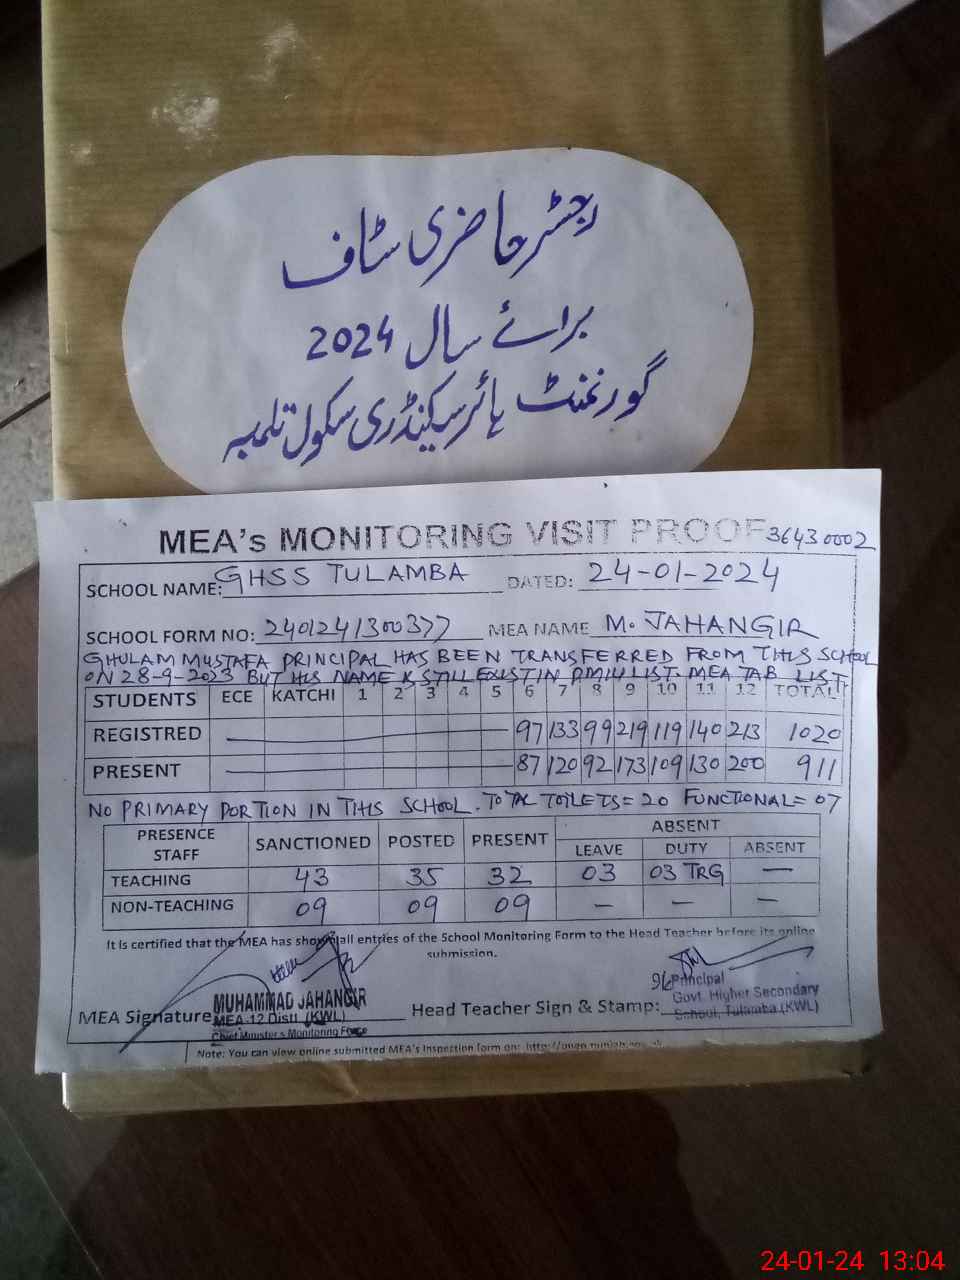 رجسٹر حاضری سٹاف
برائے سال 2024
گورنمنٹ ہائر سیکنڈری سکول تلمبہ
MEA's MONITORING VISIT PROOF 36430002
SCHOOL NAME: GHSS TULAMBA DATED: 24-01-2024
SCHOOL FORM NO: 2401241300377 MEA NAME M. JAHANGIR
GHULAM MUSTAFA PRINCIPAL HAS BEEN TRANSFERRED FROM THIS SCHOOL
ON 28-9-2023 BUT HIS NAME IS STILL EXIST IN PMIU LIST. MEA TAB LIST
STUDENTS ECE KATCHI 1 2 3 4 5 6 7 8 9 10 11 12 TOTAL
REGISTRED 97 133 99 219 119 140 213 1020
PRESENT 87 120 92 173 109 130 200 911
NO PRIMARY PORTION IN THIS SCHOOL. TOTAL TOILETS = 20 FUNCTIONAL = 07
PRESENCE STAFF SANCTIONED POSTED PRESENT ABSENT
LEAVE DUTY ABSENT
TEACHING 43 35 32 03 03 TRG —
NON-TEACHING 09 09 09 — — —
It is certified that the MEA has shown all entries of the School Monitoring Form to the Head Teacher before its online
submission.
MEA Signature MUHAMMAD JAHANGIR
MEA-12 Distt. (KWL)
Chief Minister's Monitoring Force
Head Teacher Sign & Stamp: Principal
Govt. Higher Secondary
School, Tulamba (KWL)
Note: You can view online submitted MEA's Inspection form on:
24-01-24 13:04